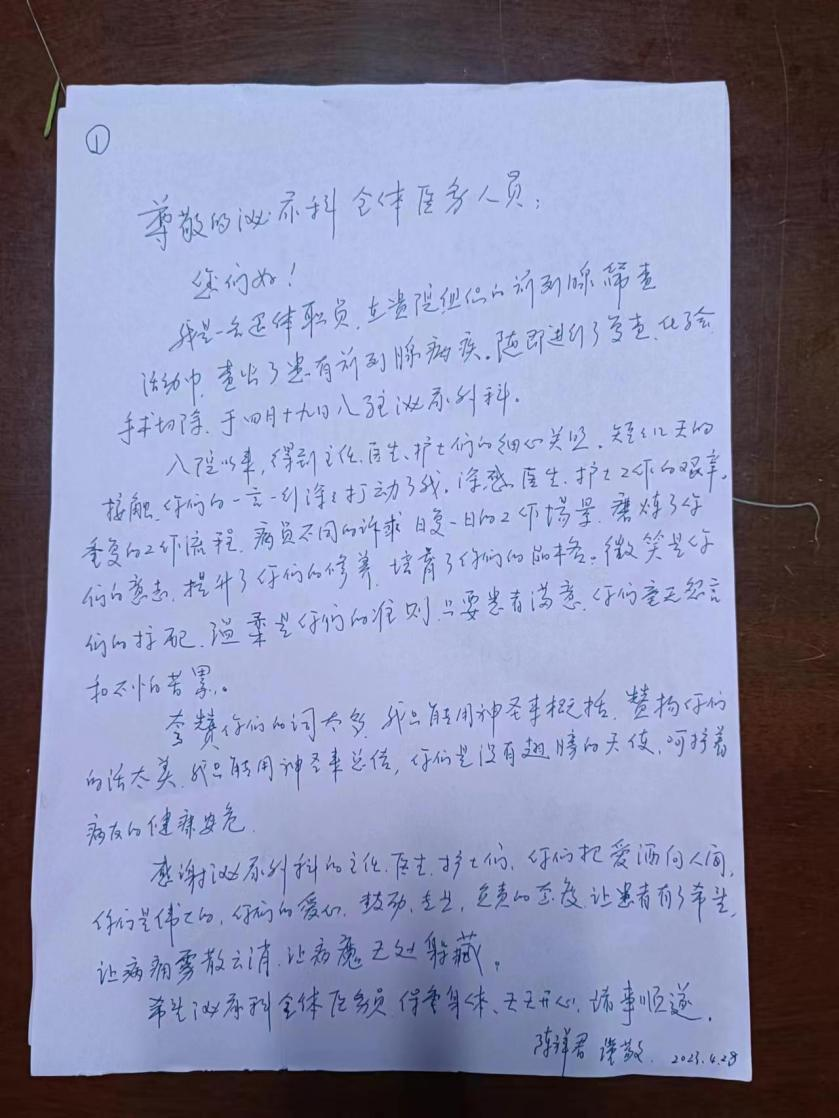 ①
尊敬的泌尿科全体医务人员：
您们好！
我是一名退休职员，在贵院组织的前列腺筛查
活动中，查出了患有前列腺病疾。随即进行了复查、化验
手术切除，于四月十九日入驻泌尿外科。
入院以来，得到主任、医生、护士们的细心关照，短短几天的
接触，你们的一言一行深深打动了我，深感医生、护士工作的艰辛。
重复的工作流程，病员不同的诉求，日复一日的工作场景，磨炼了你
们的意志，提升了你们的修养，培育了你们的品格。微笑是你
们的标配，温柔是你们的准则，只要患者满意，你们毫无怨言
和不怕苦累。
夸赞你们的词太多，我只能用神圣来概括，赞扬你们
的话太美，我只能用神圣来总结，你们是没有翅膀的天使，呵护着
病友的健康安危。
感谢泌尿外科的主任、医生、护士们，你们把爱洒向人间，
你们是伟大的，你们的爱心、鼓励、专业，负责的态度，让患者有了希望，
让病痛雾散云消，让病魔无处躲藏。
希望泌尿科全体医务员，保重身体、天天开心、诸事顺遂。
陈祥君 谨敬 2023.4.28